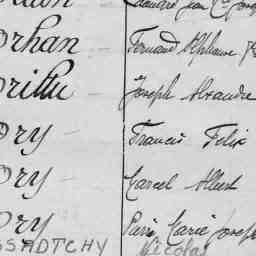 Edouard Jean
Orhan Fernand Alphonse
Joseph Alexandre
Ory Francis Felix
Ory Marcel Albert
Ory Pierre Marie Joseph
SSADTCHY Nicolas